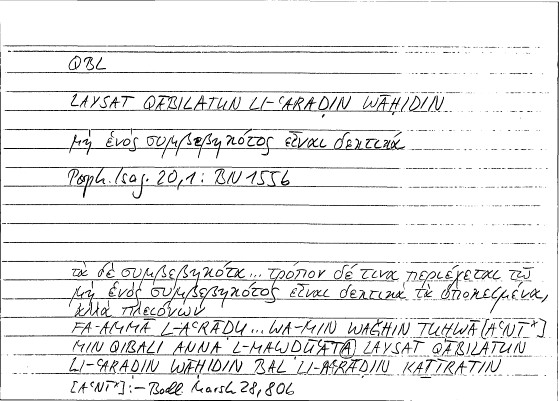 QBL
LAYSAT QĀBILATUN LI-ʿARAḌIN WĀḤIDIN
μὴ ἑνὸς συμβεβηκότος εἶναι δεκτικά
Porph. Isag. 20,1: BN 155b
τὰ δὲ συμβεβηκότα... τρόπον δέ τινα περιέχεται τῷ
μὴ ἑνὸς συμβεβηκότος εἶναι δεκτικὰ τὰ ὑποκείμενα,
ἀλλὰ πλειόνων
FA-AMMĀ L-AʿRĀḌU... WA-MIN WAǦHIN TUḤWĀ [AʿNT*]
MIN QIBALI ANNA L-MAWḌŪʿATA LAYSAT QĀBILATUN
LI-ʿARAḌIN WĀḤIDIN BAL LI-AʿRĀḌIN KAṮĪRATIN
[AʿNT*]:– Bodl. Marsh 28, 80b